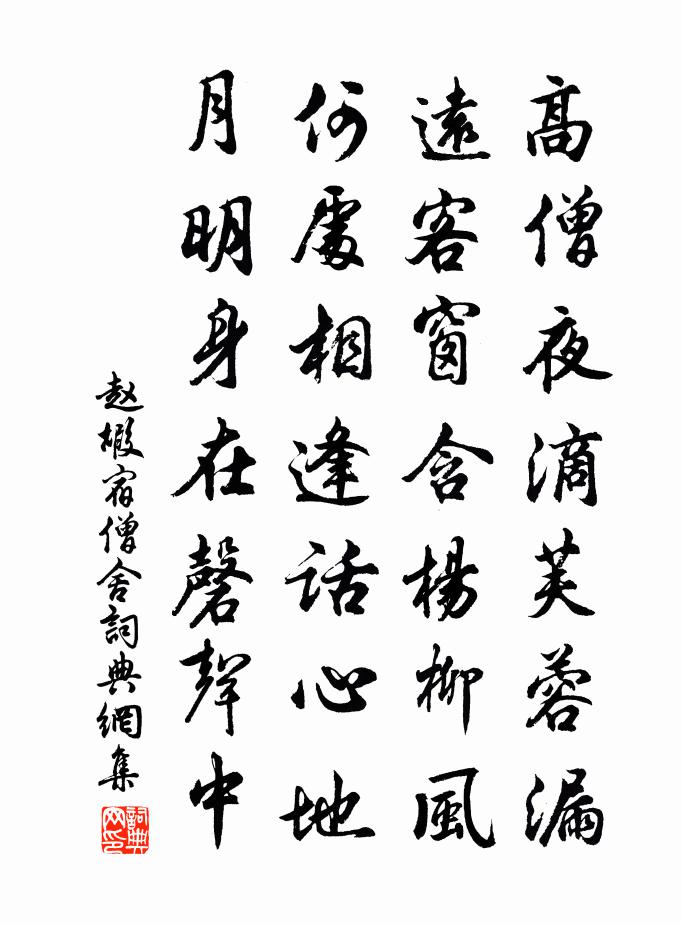 高僧夜滴芙蓉漏
遠客窗含楊柳風
何處相逢話心地
月明身在磬聲中
赵嘏宿僧舍詞典網集
詞典网印